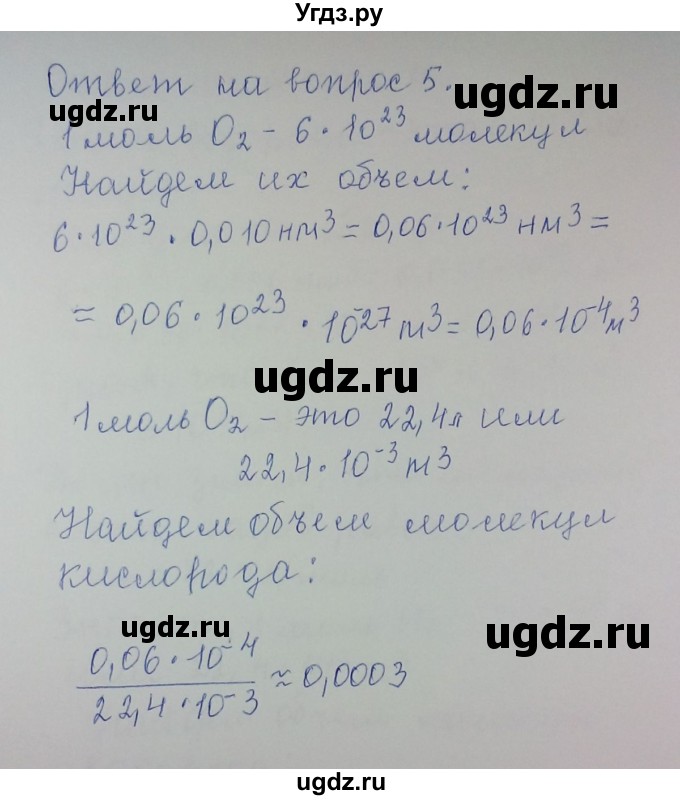 Угдз.ру
Ответ на вопрос 5.
ugdz.ru
ugdz.ru
1 моль O₂ - 6 · 10²³ молекул
Найдем их объем:
6·10²³ · 0,010 нм³ = 0,06·10²³ нм³ =
= 0,06·10²³ · 10⁻²⁷ м³ = 0,06·10⁻⁴ м³
ugdz.ru
1 моль O₂ - это 22,4 л или
22,4·10⁻³ м³
Найдем объем молекул
кислорода:
ugdz.ru
ugdz.ru
0,06·10⁻⁴
22,4·10⁻³
≈ 0,0003
ugdz.ru